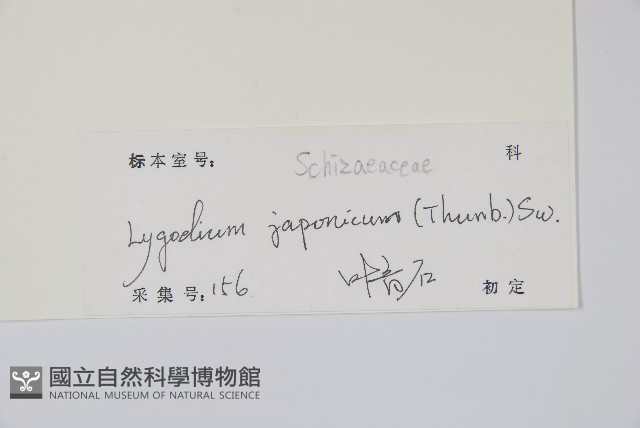 标本室号: Schizaeaceae 科
Lygodium japonicum (Thunb.) Sw.
采集号: 156 叶 石 初定
國立自然科學博物館
NATIONAL MUSEUM OF NATURAL SCIENCE